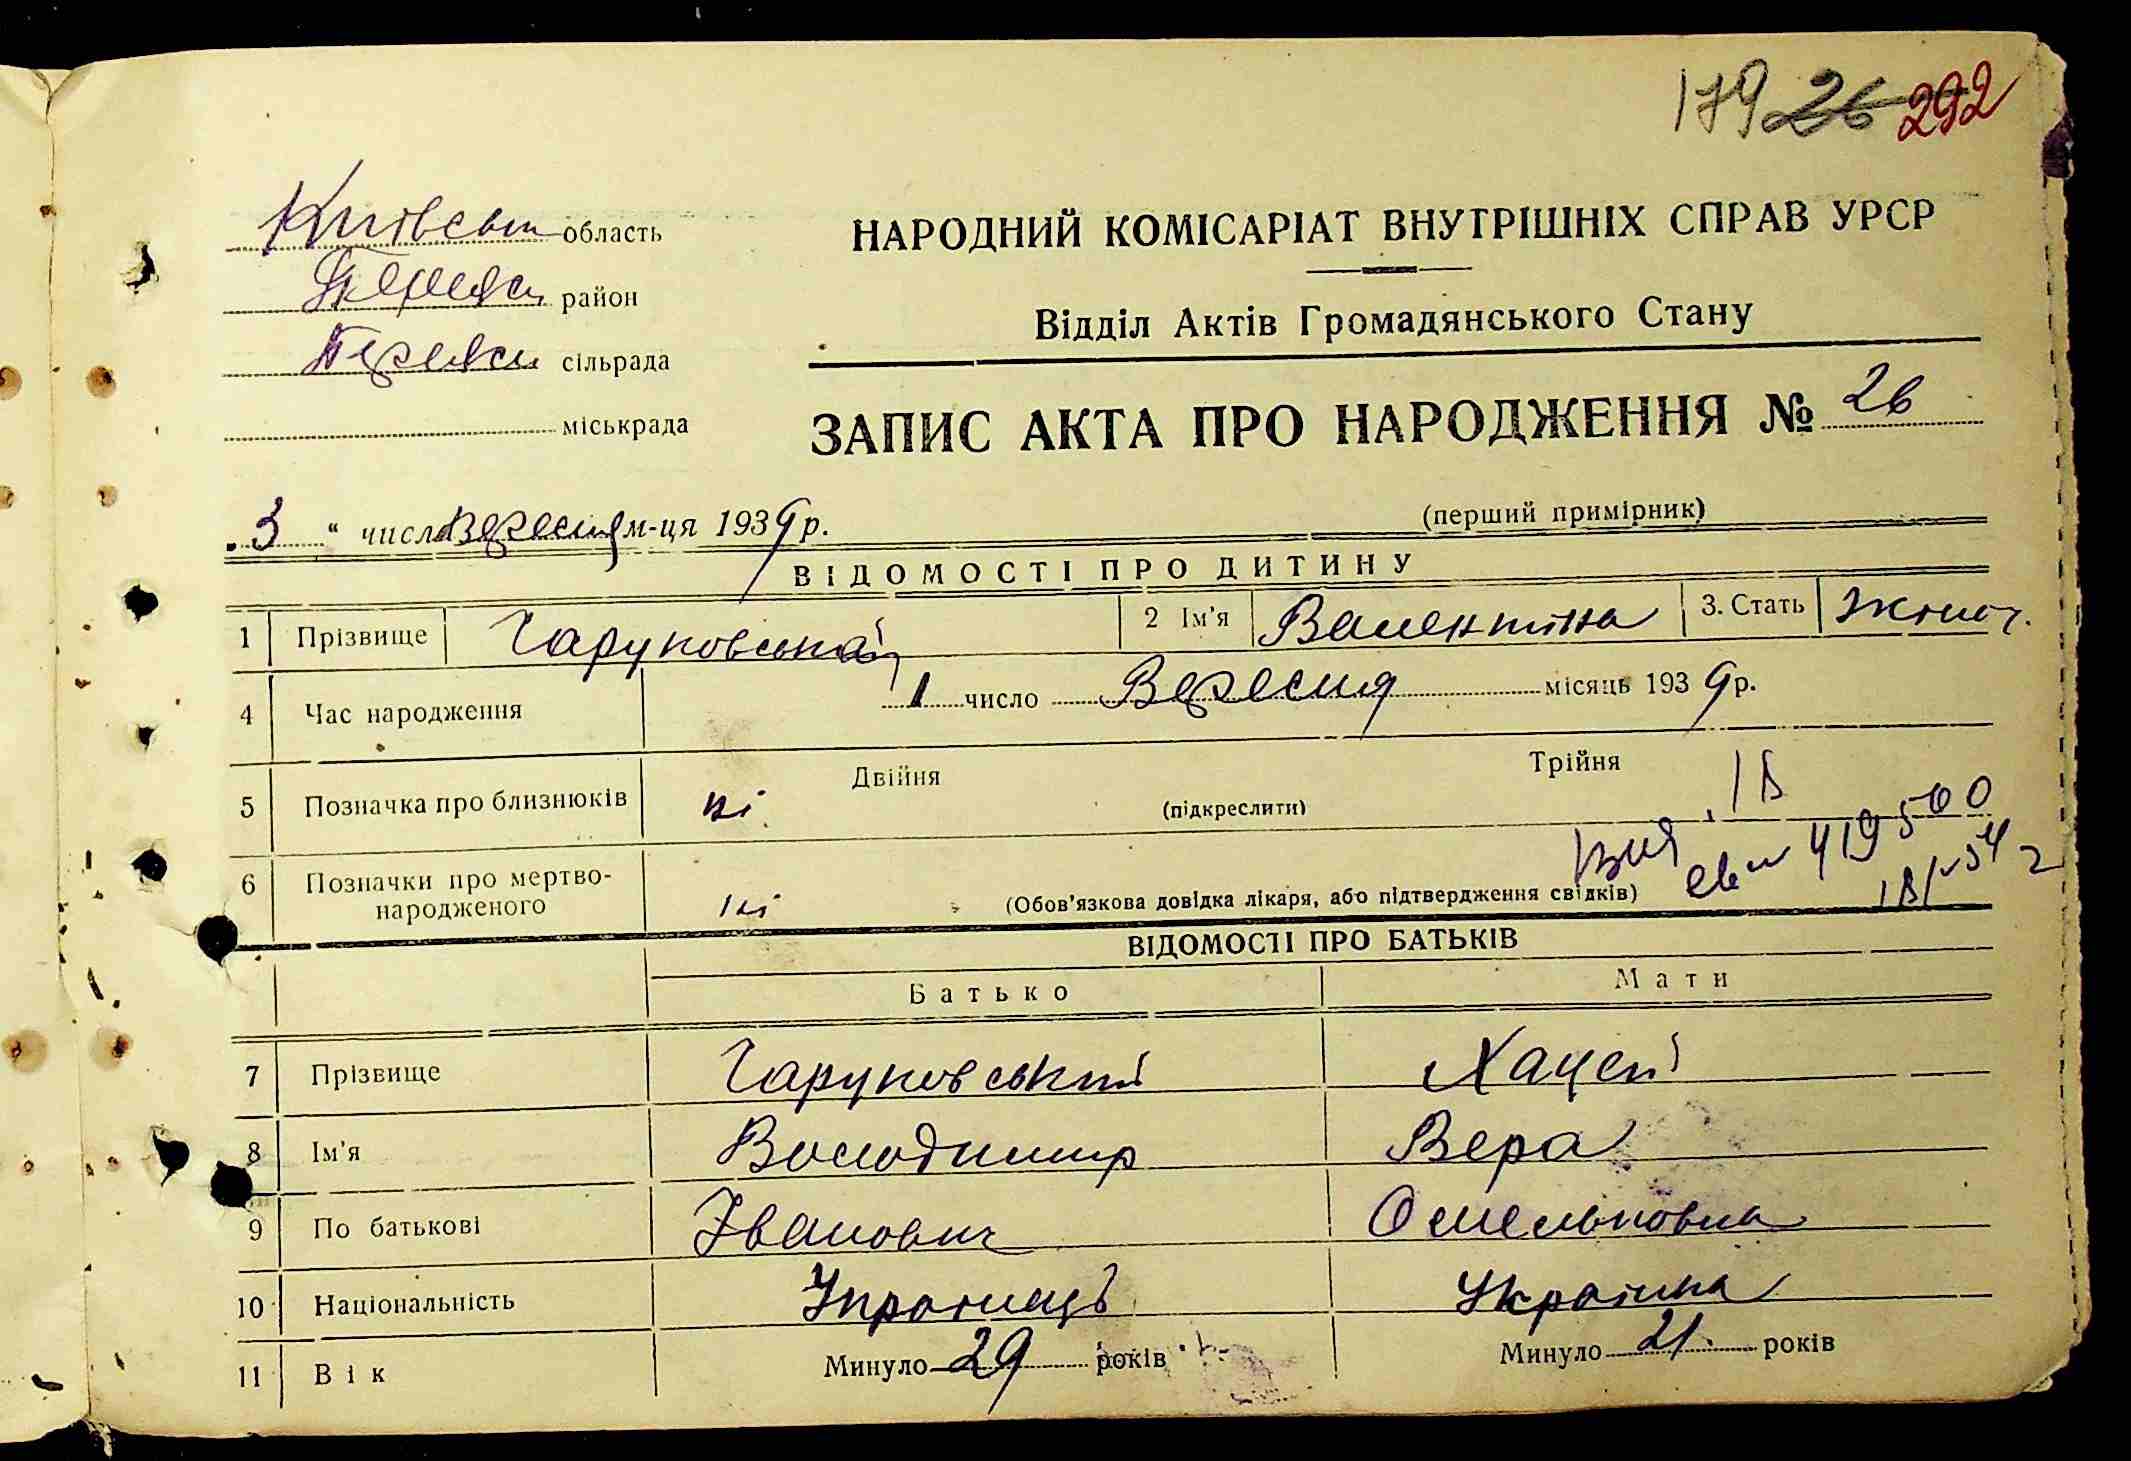 179 26 292
Київськ область
район
сільрада
міськрада
НАРОДНИЙ КОМІСАРІАТ ВНУТРІШНІХ СПРАВ УРСР
Відділ Актів Громадянського Стану
ЗАПИС АКТА ПРО НАРОДЖЕННЯ № 26
„3“ число Вересня м-ця 1939 р.
(перший примірник)
ВІДОМОСТІ ПРО ДИТИНУ
1 Прізвище Чаруковська 2 Ім'я Валентина 3. Стать жіноч.
4 Час народження 1 число Вересня місяць 1939 р.
5 Позначка про близнюків ні Двійня Трійня
(підкреслити)
6 Позначки про мертвонародженого ні (Обов'язкова довідка лікаря, або підтвердження свідків)
419500
ВІДОМОСТІ ПРО БАТЬКІВ
Батько Мати
7 Прізвище Чаруковський Хацей
8 Ім'я Володимир Вера
9 По батькові Іванович Омельковна
10 Національність Українець Українка
11 Вік Минуло 29 років Минуло 21 років